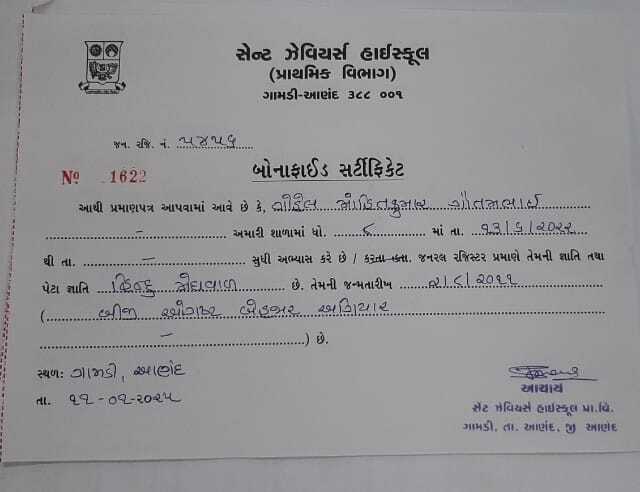 સેન્ટ ઝેવિયર્સ હાઈસ્કૂલ
(પ્રાથમિક વિભાગ)
ગામડી-આણંદ ૩૮૮ ૦૦૧
જન. રજિ. નં. ૫૪૫૬
બોનાફાઈડ સર્ટીફિકેટ
Nº 1622
આથી પ્રમાણપત્ર આપવામાં આવે છે કે, ગોહેલ મોહિતકુમાર ગૌતમભાઈ
- અમારી શાળામાં ધો. ૮ માં તા. ૧૩/૬/૨૦૨૨
થી તા. - સુધી અભ્યાસ કરે છે / કરતા હતા. જનરલ રજિસ્ટર પ્રમાણે તેમની જ્ઞાતિ તથા
પેટા જ્ઞાતિ હિન્દુ છે. તેમની જન્મતારીખ ૨/૮/૨૦૧૧
( બીજી ઓગષ્ટ બેહજાર અગિયાર
- ) છે.
સ્થળ: ગામડી, આણંદ
તા. ૨૨-૦૧-૨૦૨૫
આચાર્ય
સેંટ ઝેવિયર્સ હાઈસ્કૂલ પ્રા.વિ.
ગામડી, તા. આણંદ, જી આણંદ